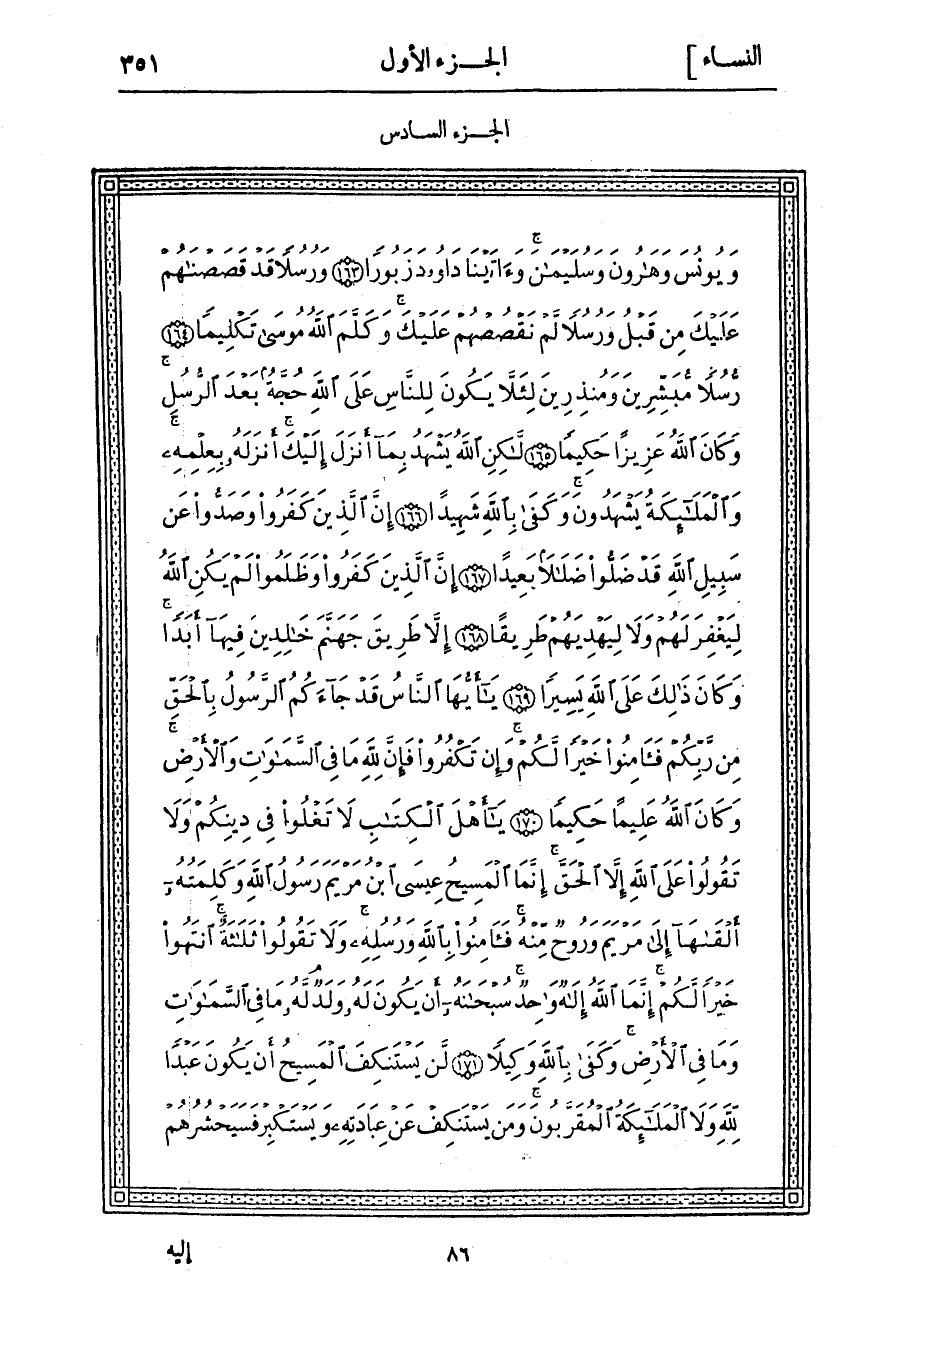 النساء] الجزء الأول ٣٥١
الجزء السادس
وَيُونُسَ وَهَٰرُونَ وَسُلَيْمَٰنَۚ وَءَاتَيْنَا دَاوُۥدَ زَبُورًا ١٦٣ وَرُسُلًا قَدْ قَصَصْنَٰهُمْ
عَلَيْكَ مِن قَبْلُ وَرُسُلًا لَّمْ نَقْصُصْهُمْ عَلَيْكَۚ وَكَلَّمَ ٱللَّهُ مُوسَىٰ تَكْلِيمًا ١٦٤
رُّسُلًا مُّبَشِّرِينَ وَمُنذِرِينَ لِئَلَّا يَكُونَ لِلنَّاسِ عَلَى ٱللَّهِ حُجَّةٌۢ بَعْدَ ٱلرُّسُلِۚ
وَكَانَ ٱللَّهُ عَزِيزًا حَكِيمًا ١٦٥ لَّٰكِنِ ٱللَّهُ يَشْهَدُ بِمَآ أَنزَلَ إِلَيْكَۚ أَنزَلَهُۥ بِعِلْمِهِۦۚ
وَٱلْمَلَٰٓئِكَةُ يَشْهَدُونَۚ وَكَفَىٰ بِٱللَّهِ شَهِيدًا ١٦٦ إِنَّ ٱلَّذِينَ كَفَرُوا۟ وَصَدُّوا۟ عَن
سَبِيلِ ٱللَّهِ قَدْ ضَلُّوا۟ ضَلَٰلًۢا بَعِيدًا ١٦٧ إِنَّ ٱلَّذِينَ كَفَرُوا۟ وَظَلَمُوا۟ لَمْ يَكُنِ ٱللَّهُ
لِيَغْفِرَ لَهُمْ وَلَا لِيَهْدِيَهُمْ طَرِيقًا ١٦٨ إِلَّا طَرِيقَ جَهَنَّمَ خَٰلِدِينَ فِيهَآ أَبَدًاۚ
وَكَانَ ذَٰلِكَ عَلَى ٱللَّهِ يَسِيرًا ١٦٩ يَٰٓأَيُّهَا ٱلنَّاسُ قَدْ جَآءَكُمُ ٱلرَّسُولُ بِٱلْحَقِّ
مِن رَّبِّكُمْ فَـَٔامِنُوا۟ خَيْرًا لَّكُمْۚ وَإِن تَكْفُرُوا۟ فَإِنَّ لِلَّهِ مَا فِى ٱلسَّمَٰوَٰتِ وَٱلْأَرْضِۚ
وَكَانَ ٱللَّهُ عَلِيمًا حَكِيمًا ١٧٠ يَٰٓأَهْلَ ٱلْكِتَٰبِ لَا تَغْلُوا۟ فِى دِينِكُمْ وَلَا
تَقُولُوا۟ عَلَى ٱللَّهِ إِلَّا ٱلْحَقَّۚ إِنَّمَا ٱلْمَسِيحُ عِيسَى ٱبْنُ مَرْيَمَ رَسُولُ ٱللَّهِ وَكَلِمَتُهُۥٓ
أَلْقَىٰهَآ إِلَىٰ مَرْيَمَ وَرُوحٌ مِّنْهُۚ فَـَٔامِنُوا۟ بِٱللَّهِ وَرُسُلِهِۦۚ وَلَا تَقُولُوا۟ ثَلَٰثَةٌۚ ٱنتَهُوا۟
خَيْرًا لَّكُمْۚ إِنَّمَا ٱللَّهُ إِلَٰهٌ وَٰحِدٌۚ سُبْحَٰنَهُۥٓ أَن يَكُونَ لَهُۥ وَلَدٌۘ لَّهُۥ مَا فِى ٱلسَّمَٰوَٰتِ
وَمَا فِى ٱلْأَرْضِۚ وَكَفَىٰ بِٱللَّهِ وَكِيلًا ١٧١ لَّن يَسْتَنكِفَ ٱلْمَسِيحُ أَن يَكُونَ عَبْدًا
لِّلَّهِ وَلَا ٱلْمَلَٰٓئِكَةُ ٱلْمُقَرَّبُونَۚ وَمَن يَسْتَنكِفْ عَنْ عِبَادَتِهِۦ وَيَسْتَكْبِرْ فَسَيَحْشُرُهُمْ
٨٦ إليه